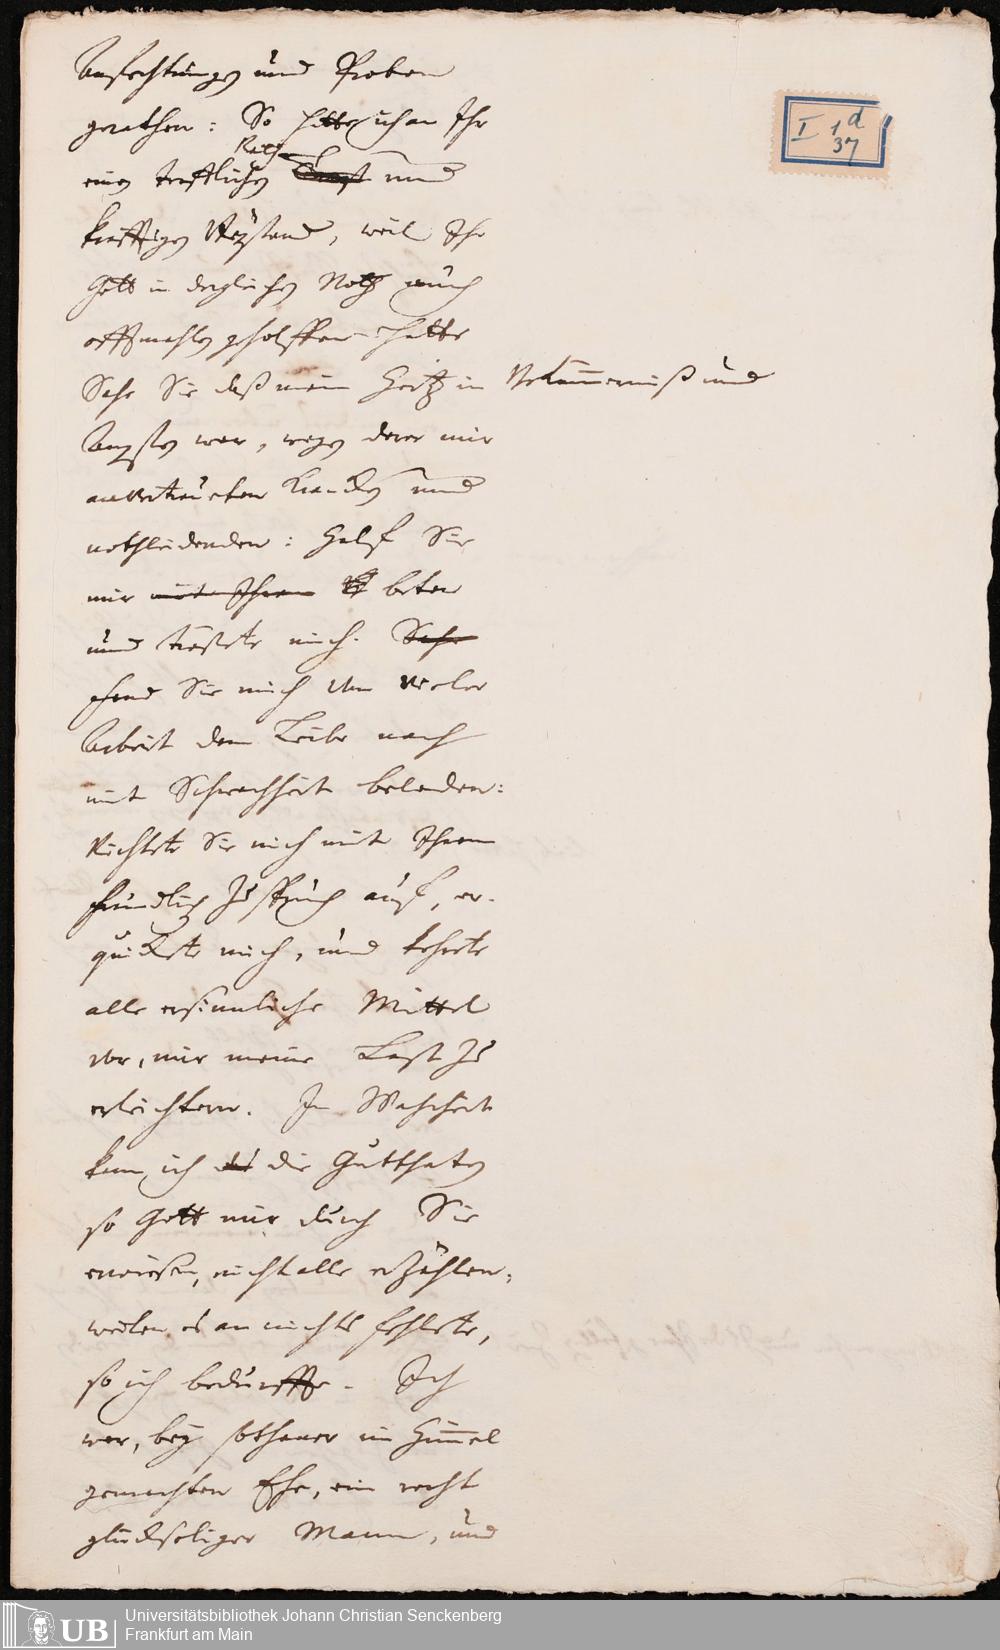 Anfechtungen und Proben
gerathen: So hatte ich an Ihr
Rath
einen trefflichen und
kräfftigen Beystand, weil Ihr
Gott in dergleichen Noth auch
offtmahlen geholffen hatte
Sahe Sie daß mein Hertz in Bekümmerniß und
Ängsten war, wegen derer mir
anvertraueten Krancken und
nothleidenden: Halff Sie
mir mit Ihrem beten
und tröstete mich. Sahe
fand Sie mich von vieler
Arbeit dem Leibe nach
mit Schwachheit beladen:
Richtete Sie mich mit Ihrem
freundlich Zuspruch auf, er-
quickete mich, und kehrete
alle ersinnliche Mittel
vor, mir meine Last zu
erleichtern. In Wahrheit
kan ich die Gutthaten
so Gott mir durch Sie
erwiesen, nicht alle erzählen,
weilen es an nichts fehlete,
so ich bedurffte. Ich
war, bey sothaner im Himmel
gemachten Ehe, ein recht
glückseliger Mann, und
I 1 d
37
UB
Universitätsbibliothek Johann Christian Senckenberg
Frankfurt am Main